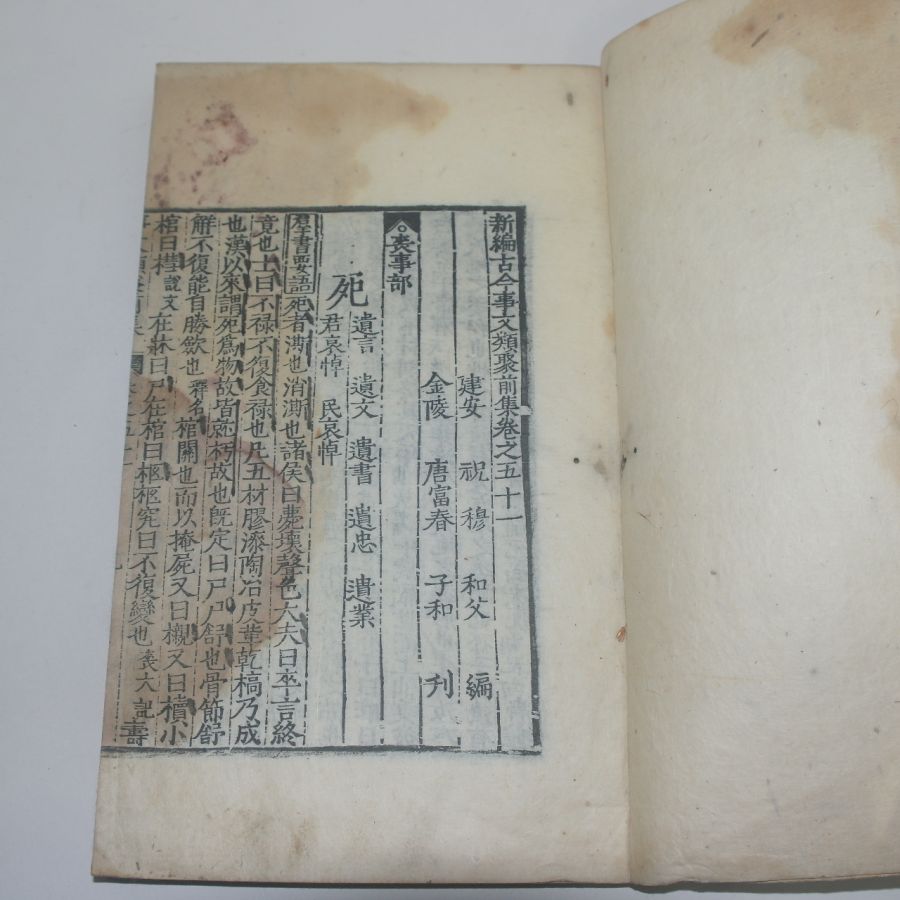 新編古今事文類聚前集卷之五十一
建安 祝 穆 和父 編
金陵 唐富春 子和 刋
喪事部
死 遺言 遺文 遺書 遺忠 遺業
君哀悼 民哀悼
羣書要語死者澌也消澌也諸侯曰薨壞聲色大夫曰卒言終
竟也士曰不禄不復食禄也凡五材膠漆陶冶皮革乾槁乃成
也漢以來謂死爲物故皆就朽故也旣定曰尸尸舒也骨節舒
解不復能自勝斂也釋名棺關也而以掩屍又曰櫬又曰櫝小
棺曰槥說文在牀曰尸在棺曰柩柩究曰不復變也喪大記壽